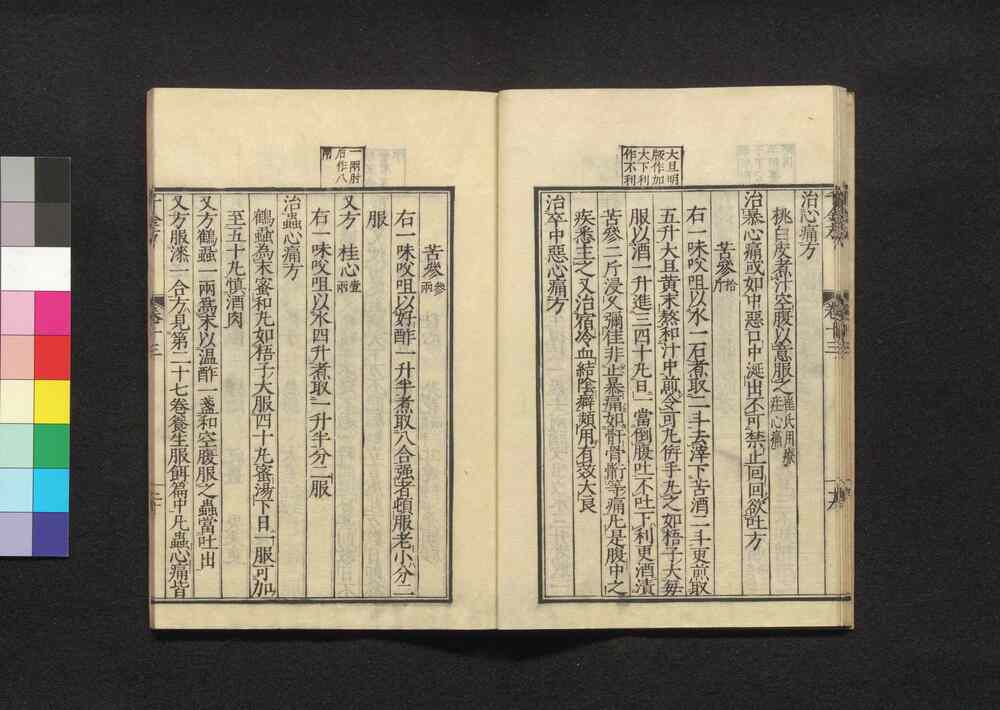 大且明
版作加
大下利
作不利
治心痛方
桃白皮煮汁空腹以意服之崔氏用療
疰心痛
治暴心痛或如中惡口中涎出不可禁止回回欲吐方
苦參拾斤
右一味㕮咀以水一石煮取二斗去滓下苦酒二斗更煎取
五升大豆黃末熬和汁中煎令可丸併手丸之如梧子大每
服以酒一升進三四十丸日一當倒腹吐不吐下利更酒漬
苦參二斤浸久彌佳非止暴痛如骭骨䯒等痛凡是腹中之
疾悉主之又治宿冷血結陰癖頻用有效大良
治卒中惡心痛方
一兩肘
后作八
兩
苦參參兩
右一味㕮咀以好酢一升半煮取八合强者頓服老小分二
服
又方 桂心壹兩
右一味㕮咀以水四升煮取一升半分二服
治蟲心痛方
鶴蝨為末蜜和丸如梧子大服四十丸蜜湯下日一服可加
至五十丸慎酒肉
又方鶴蝨一兩為末以温酢一盞和空腹服之蟲當吐出
又方服漆一合方見第二十七卷養生服餌篇中凡蟲心痛皆